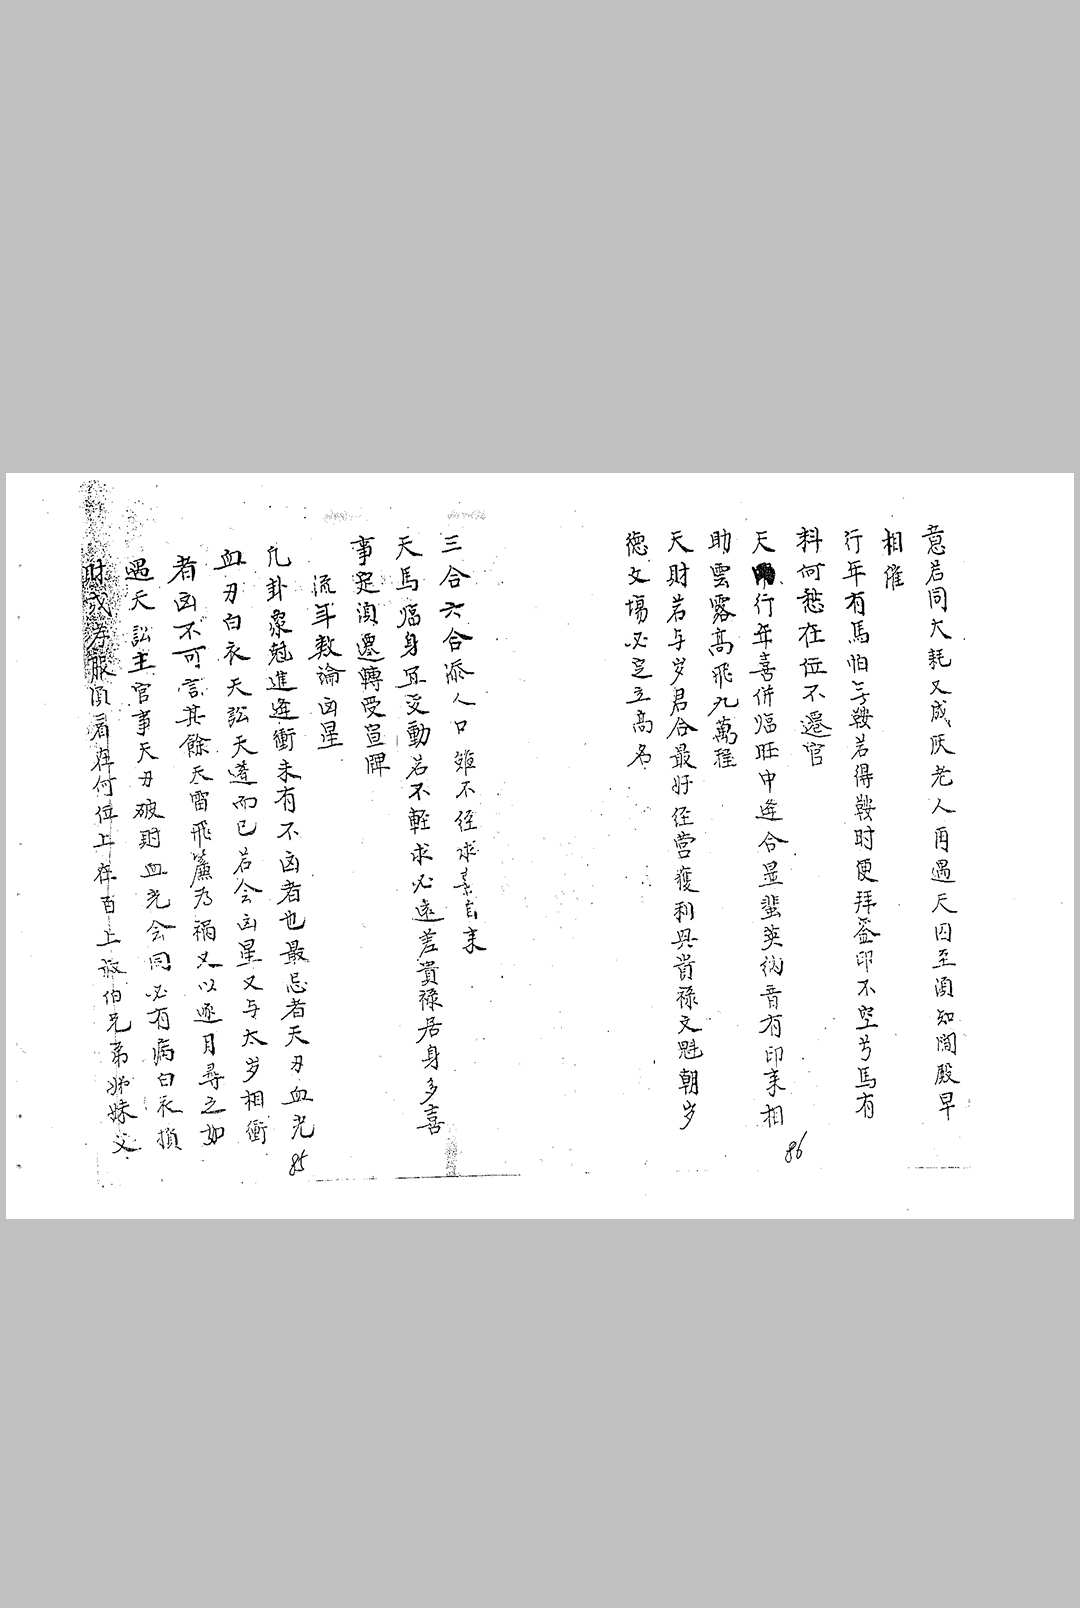 意若同大耗又成灰老人再遇天囚至須知閻殿早
相催
行年有馬怕与鞍若得鞍时便拜签印不空亏馬有
料何愁在位不遷官
天 行年喜併临旺申逢合显蜚英纳音有印来相
助雲霧高飛九萬程
天財若与岁君合最好经营獲利兴貴禄文魁朝岁
德文場必定立高名
86
三合六合添人口雖不经求自来
天馬临身宜受動若不軽求必遠差貴禄居身多喜
事定須遷轉受宣牌
流年数論凶星
凡卦象尅進逢衝未有不凶者也最忌者天刃血光
血刃白衣天訟天遊而已若会凶星又与太岁相衝
者凶不可言其餘天雷飛簾为禍又以逐月尋之如
遇天訟主官事天刃破財血光会同必有病白衣損
財或孝服須看在何位上在百上 伯兄弟姊妹父
85